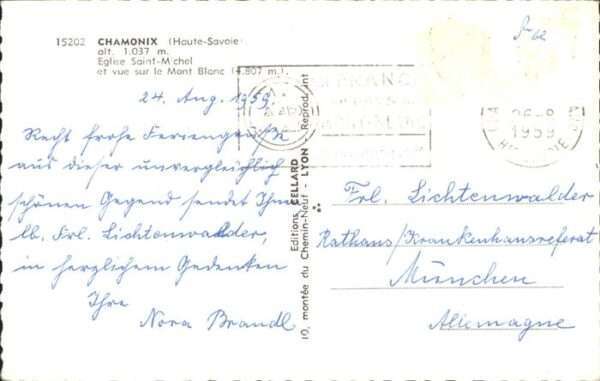 15202 CHAMONIX (Haute-Savoie)
alt. 1.037 m.
Eglise Saint-Michel
et vue sur le Mont Blanc (4.807 m.).
24. Aug. 1959.
Recht frohe Feriengrüße
aus dieser unvergleichlich
schönen Gegend sendet Ihnen
lb. Frl. Lichtenwalder,
in herzlichem Gedenken
Ihre
Nora Brandl
Editions CELLARD
10, montée du Chemin-Neuf - LYON - Reprod. int
FRANC
1959
Frl. Lichtenwalder
Rathaus/Krankenhausreferat
München
Allemagne